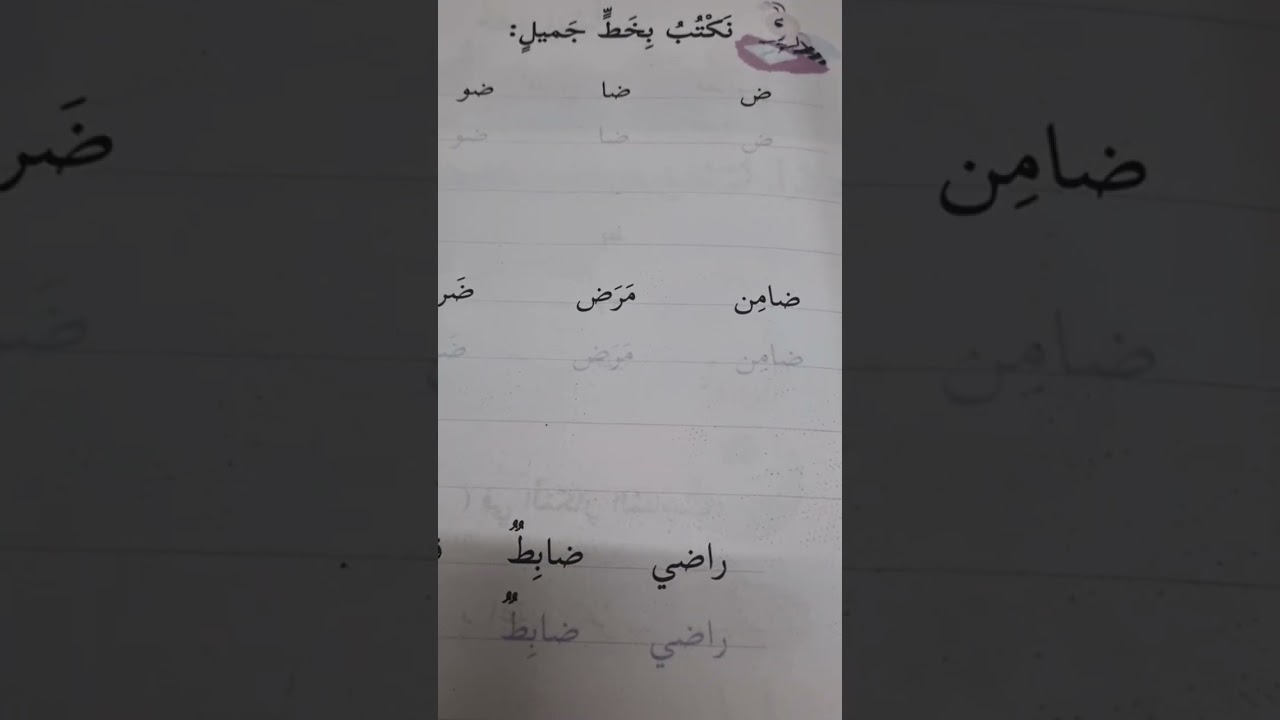 نَكْتُبُ بِخَطٍّ جَميلٍ:
ض ضا ضو
ض ضا ضو
ضامِن مَرَض ضَر
ضامِن مَرَض
راضي ضابِطٌ
راضي ضابِطٌ